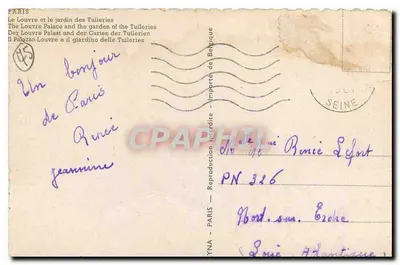 PARIS
Le Louvre et le jardin des Tuileries
The Louvre Palace and the garden of the Tuileries
Der Louvre Palast und der Garten der Tuilerien
Il Palazzo Louvre e il giardino delle Tuileries
45
Un bonjour
de Paris
Renée
jeannine
YNA - PARIS — Reproduction interdite - Importé de Belgique
CPARAMA
SEINE
Renée Lefort
PN 326
Nort sur Erdre
Loire Atlantique